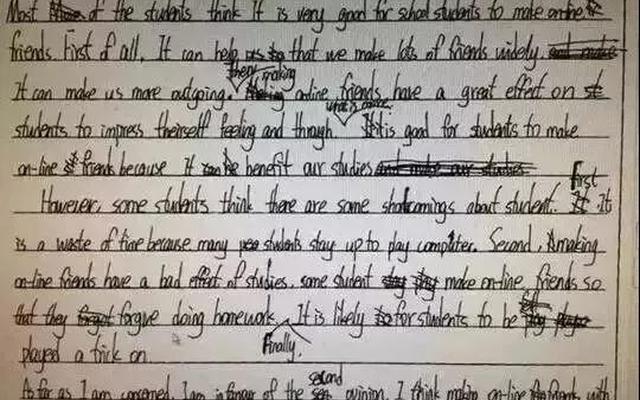 Most of the students think It is very good for school students to make on-line
friends. First of all, It can help us that we make lots of friends widely.
It can make us more outgoing. Then, making on-line friends have a great effect on
students to impress theirself feeling and through. What is more, It is good for students to make
on-line friends because It can benefit our studies
However, some students think there are some shortcomings about student. First It
is a waste of time because many students stay up to play computer. Second, making
on-line friends have a bad effect of studies. some student make on-line friends so
that they forgve doing homework. Finally, It is likely for students to be
played a trick on.
As far as I am concerned, I am in favor of the second opinion. I think making on-line friends with